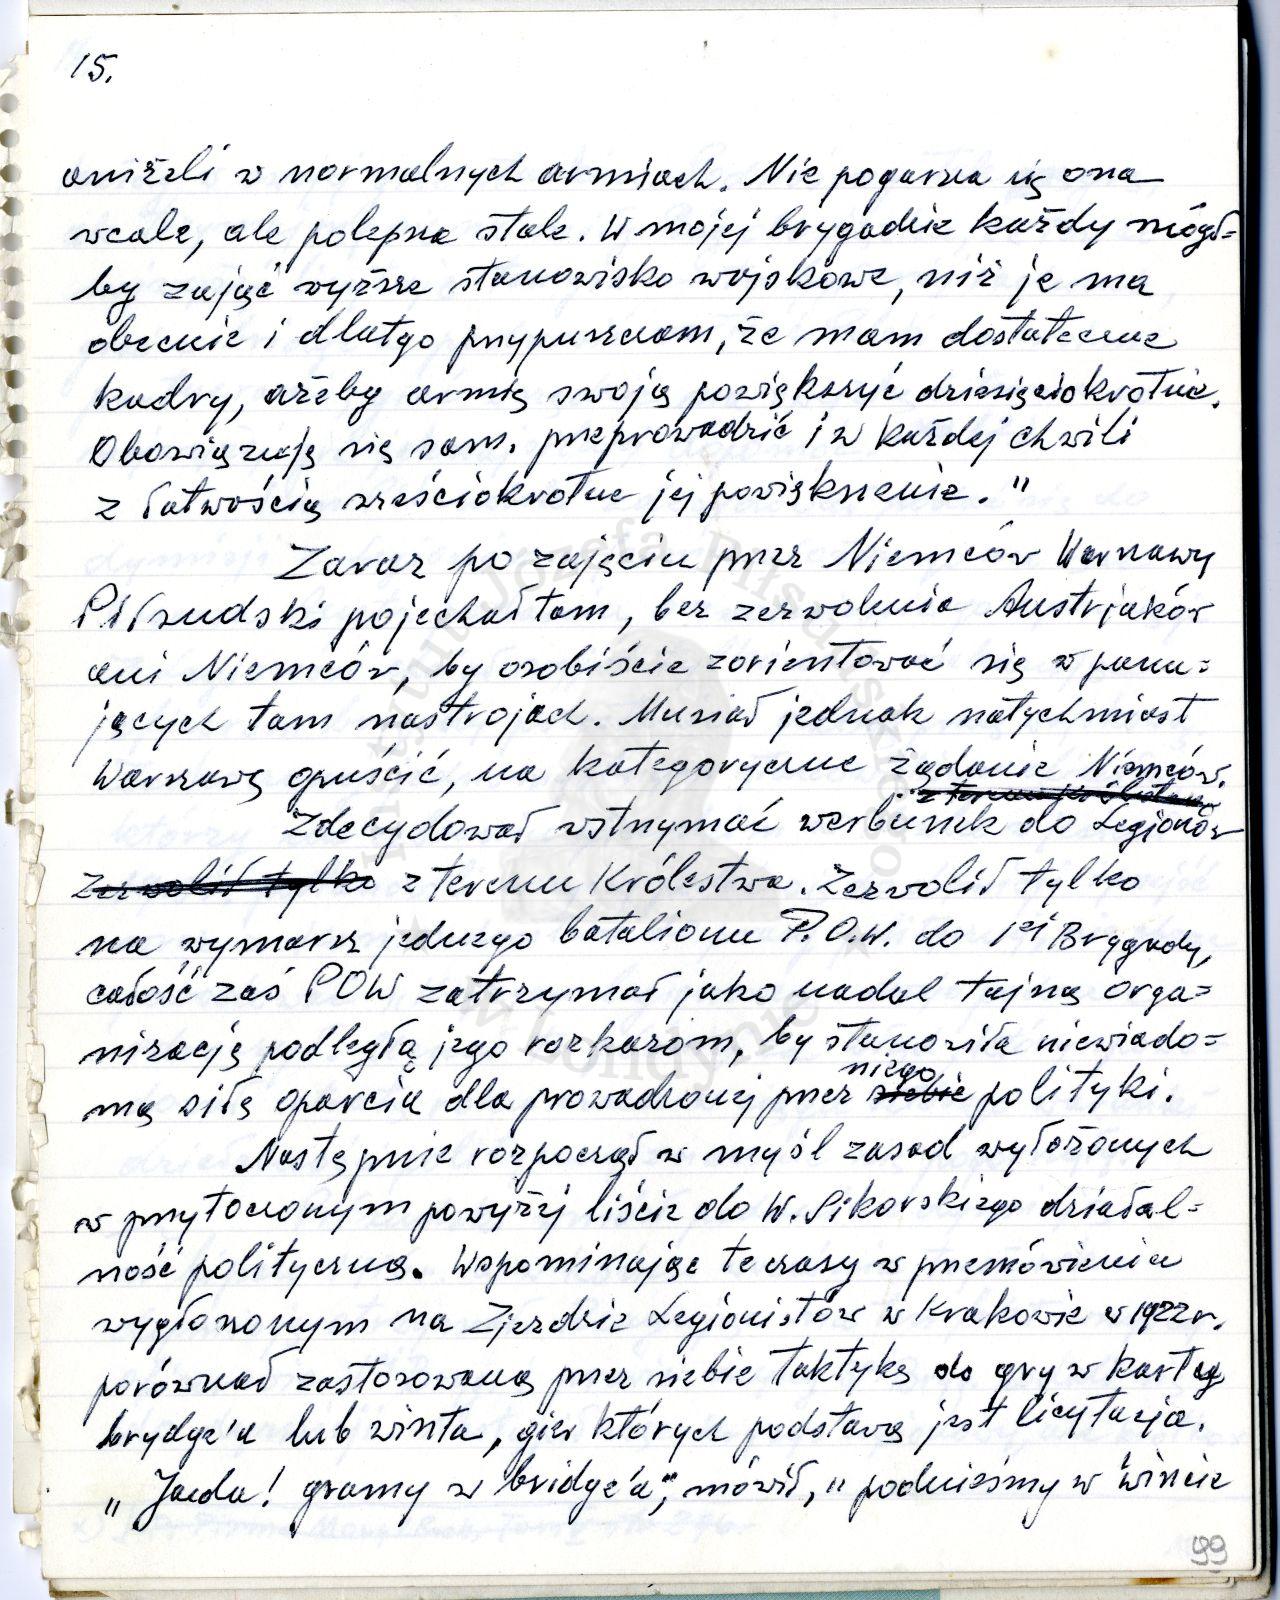 15.
aniżeli w normalnych armiach. Nie pogarsza się ona
wcale, ale polepsza stale. W mojej brygadzie każdy mógł=
by zająć wyższe stanowisko wojskowe, niż je ma
obecnie i dlatego przypuszczam, że mam dostateczne
kadry, ażeby armię swoją powiększyć dziesięciokrotnie.
Obowiązuję się sam. przeprowadzić i w każdej chwili
z łatwością sześciokrotne jej powiększenie."
Zaraz po zajęciu przez Niemców Warszawy
Piłsudski pojechał tam, bez zezwolenia Austrjaków
ani Niemców, by osobiście zorientować się w panu=
jących tam nastrojach. Musiał jednak natychmiast
Warszawę opuścić, na kategoryczne żądanie Niemców.
z terenu Królestwa
Zdecydował wstrzymać werbunek do Legionów
Zezwolił tylko z terenu Królestwa. Zezwolił tylko
na wymarsz jednego batalionu P.O.W. do Iej Brygady,
całość zaś POW zatrzymał jako nadal tajną orga=
nizację podległą jego rozkazom, by stanowiła niewiado=
mą siłę oparcia dla prowadzonej przez siebie niego polityki.
Następnie rozpoczął w myśl zasad wyłożonych
w przytoczonym powyżej liście do W. Sikorskiego działal=
ność polityczną. Wspominając te czasy w przemówieniu
wygłoszonym na Zjeździe Legionistów w Krakowie w 1922 r.
porównał zastosowaną przez siebie taktykę do gry w kartę
brydge'a lub winta, gier których podstawą jest licytacja.
„Jazda! gramy w bridge'a", mówił, „podnieśmy w wincie
99